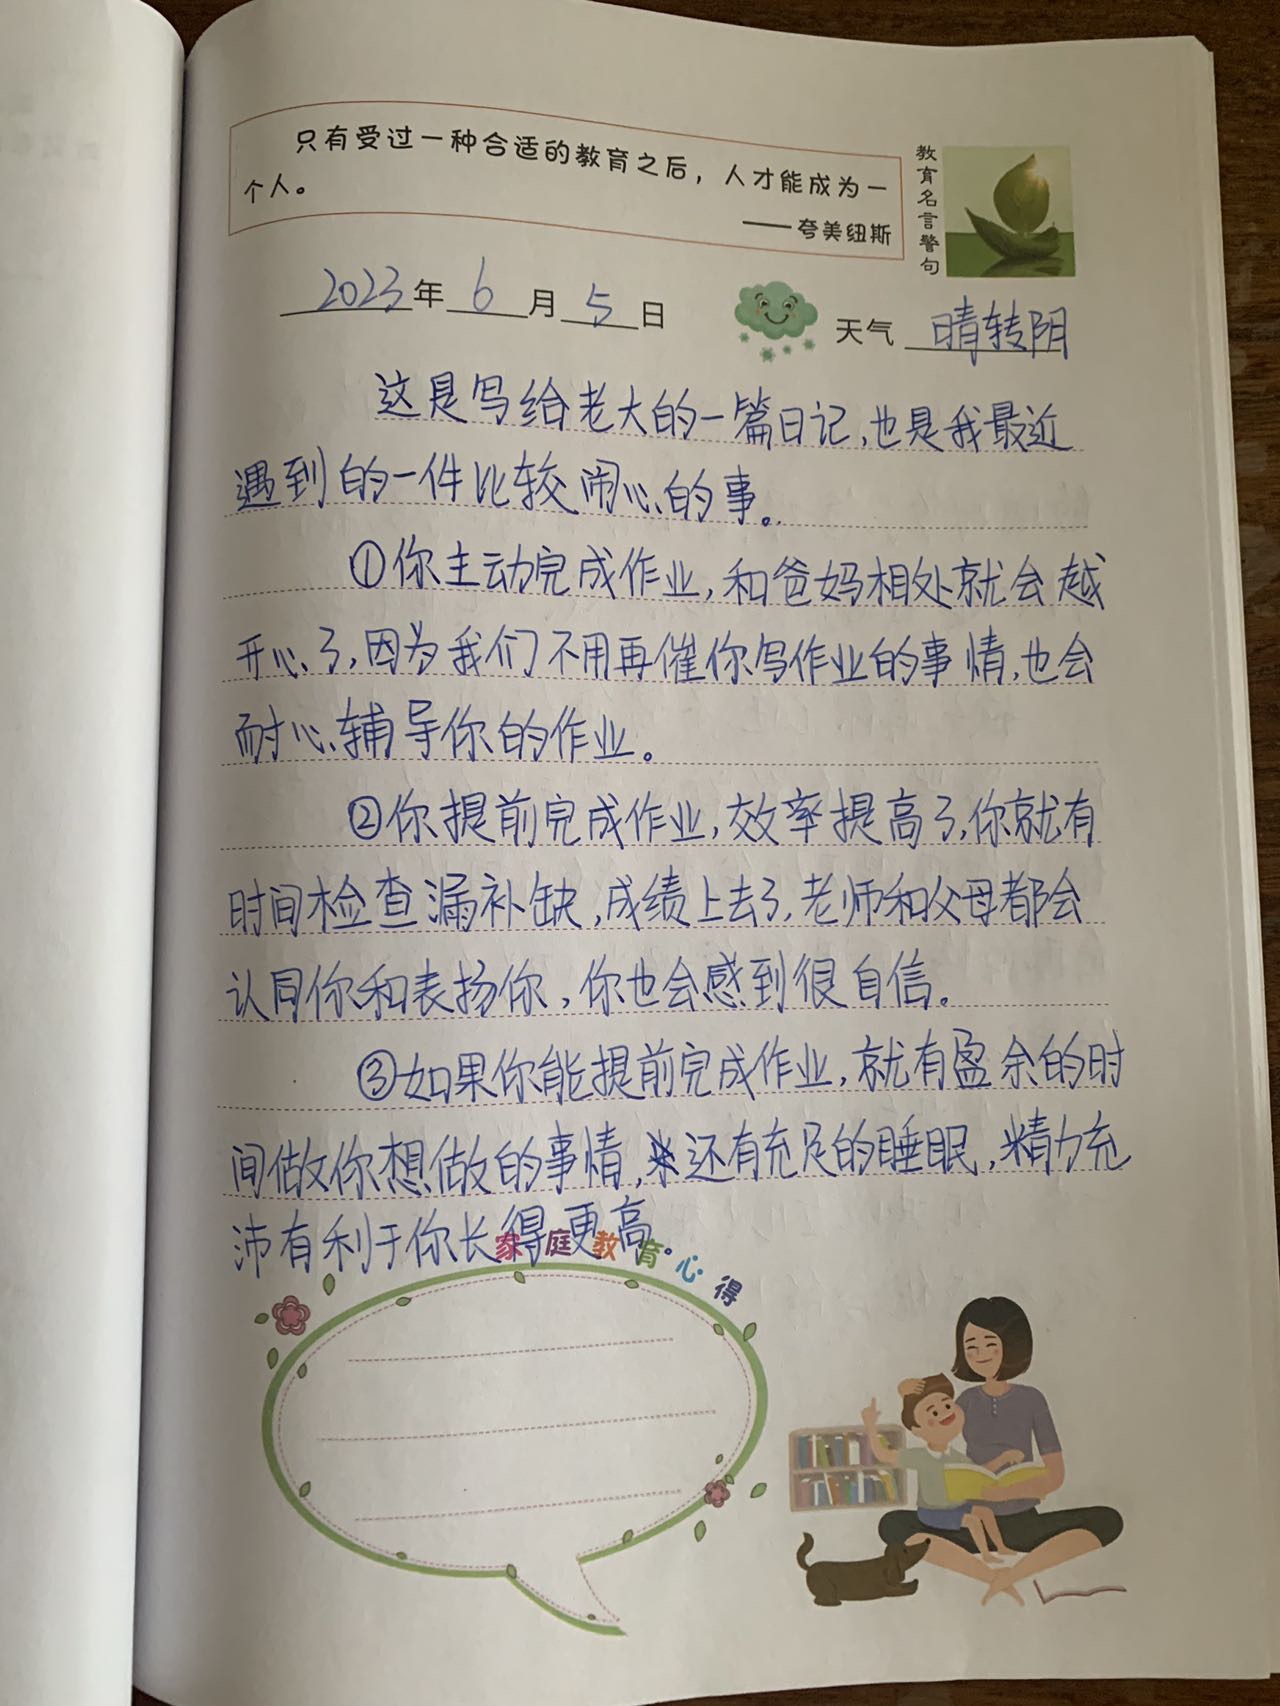 只有受过一种合适的教育之后，人才能成为一
个人。
——夸美纽斯
教育名言警句
2023年6月5日
天气 晴转阴
这是写给老大的一篇日记，也是我最近
遇到的一件比较闹心的事。
①你主动完成作业，和爸妈相处就会越
开心了，因为我们不用再催你写作业的事情，也会
耐心辅导你的作业。
②你提前完成作业，效率提高了，你就有
时间检查漏补缺，成绩上去了，老师和父母都会
认同你和表扬你，你也会感到很自信。
③如果你能提前完成作业，就有盈余的时
间做你想做的事情，还有充足的睡眠，精力充
沛有利于你长得更高。
家庭教育心得